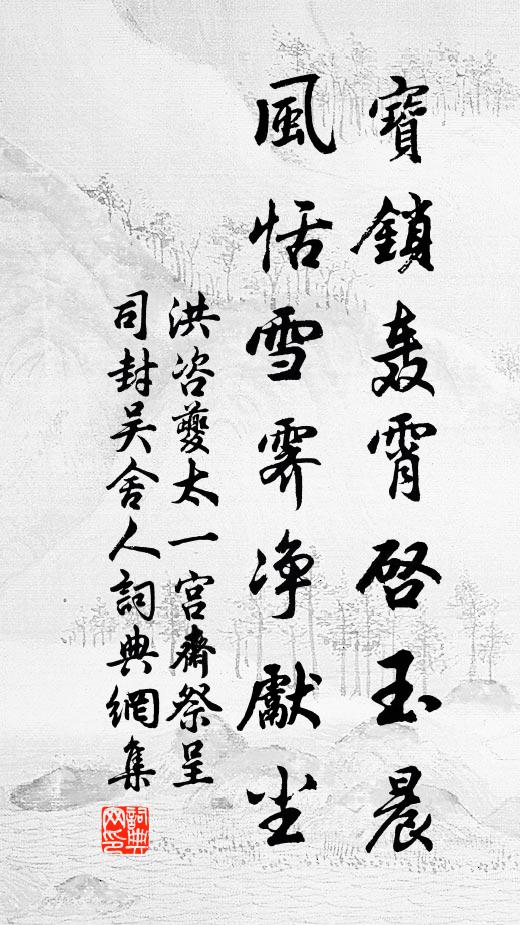 寶鎖轰霄啓玉晨
風恬雪霽净獻尘
洪咨夔太一宫齋祭呈
司封吴舍人詞典網集
詞典网印